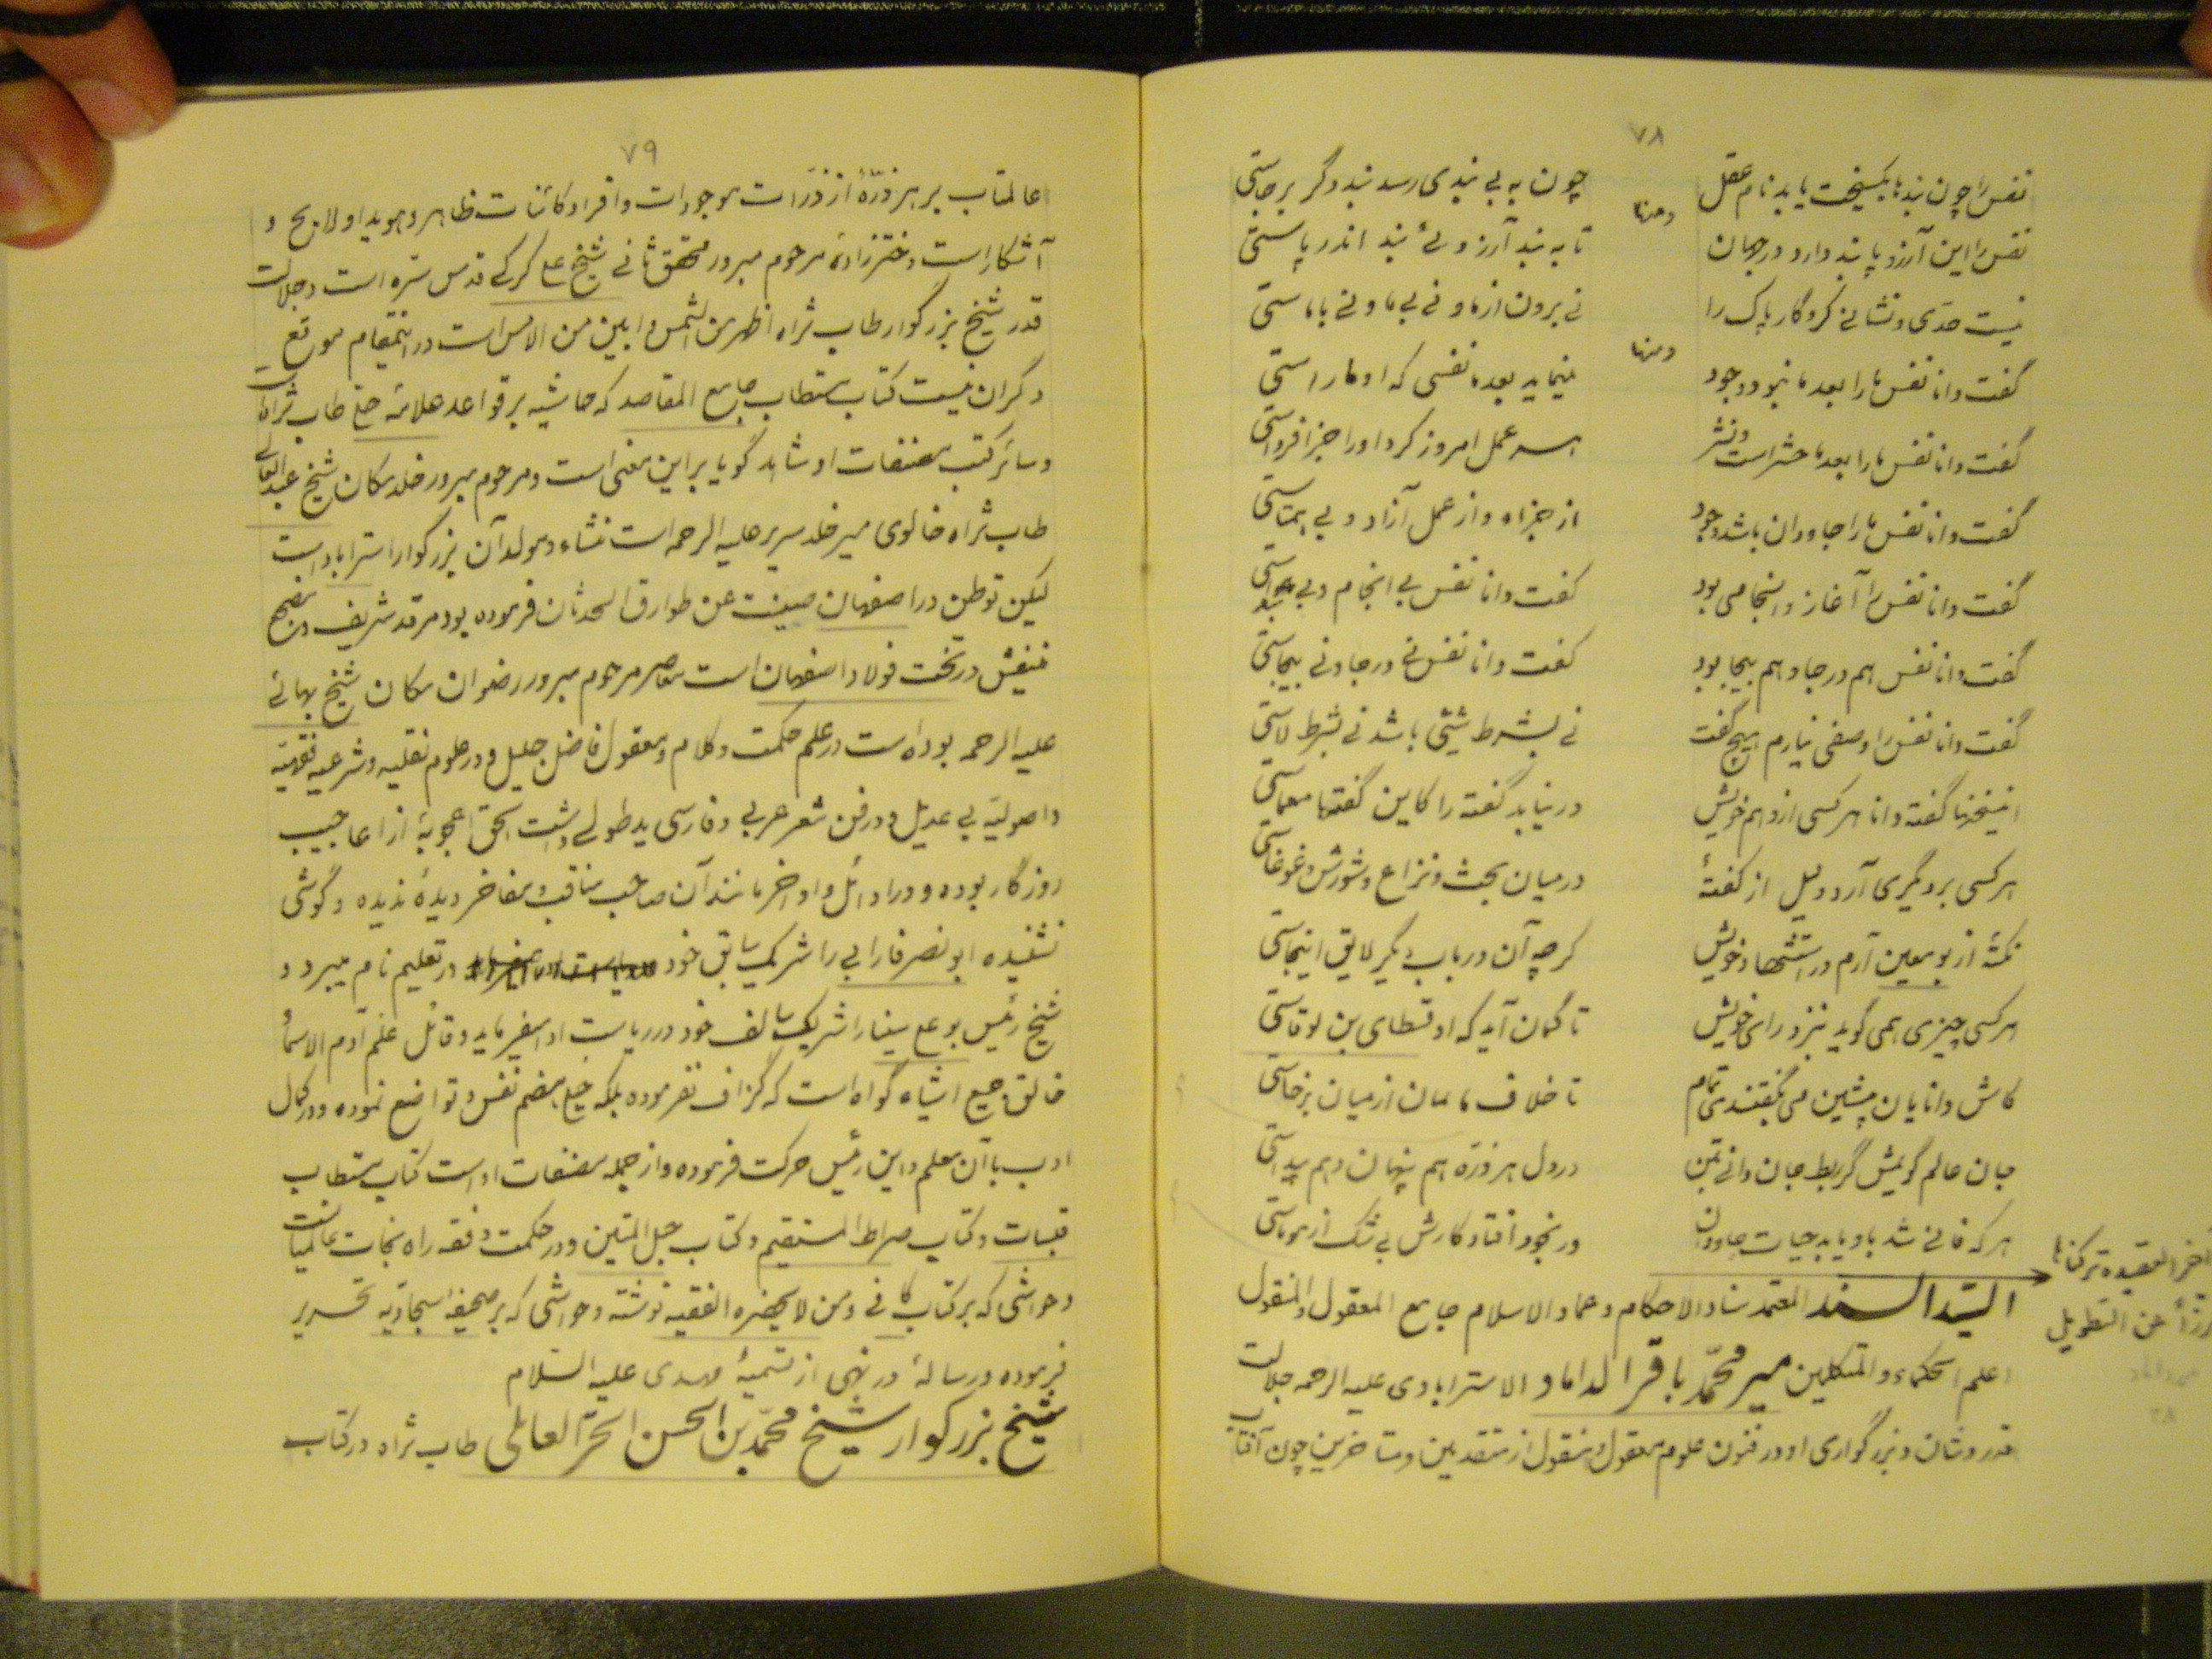 ۷۸
نفس را چون بندها بگسیخت یابد نام عقل
چون به بی بندی رسد بند دگر برجاستی
ومنها
نفس را این آرزو پابند دارد در جهان
تا به بند آرزوئی بند اندر پاستی
نیست حدی و نشانی کردگار پاک را
نی برون از ما و نی بی ما و نی با ماستی
ومنها
گفت دانا نفس ما را بعد ما نبود وجود
مینماید بعد ما نفسی که او ما راستی
گفت دانا نفس ما را بعد ما حشر است و نشر
هر عمل امروز کرد او را جزا فرداستی
گفت دانا نفس ما را جاودان باشد وجود
از جزاء و از عمل آزاد و بی همتاستی
گفت دانا نفس را آغاز و انجامی بود
گفت دانا نفس بی انجام و بی مبداستی
گفت دانا نفس هم در جا و هم بیجا بود
گفت دانا نفس نی در جا و نی بیجاستی
گفت دانا نفس را وصفی نیارم هیچ گفت
نی بشرط شیئی باشد نی بشرط لاستی
اینسخنها گفته دانا هر کسی از وهم خویش
در نیابد گفته را کاین گفتها معماستی
هر کسی بر دیگری آرد دلیل از گفتهٔ
در میان بحث و نزاع و شورش و غوغاستی
نکتهٔ از بو معین آرم در استشهاد خویش
گرچه آن در باب دیگر لایق اینجاستی
هر کسی چیزی همی گوید بنزد رای خویش
تا گمان آید که او قسطای بن لوقاستی
کاش دانایان پیشین می بگفتندی تمام
تا خلاف ناتمامان از میان برخاستی
جان عالم گویمش گر ربط جان دانی بتن
در دل هر ذره هم پنهان و هم پیداستی
هر که فانی شد باو یابد حیات جاودان
ور بخود افتاد کارش بی شک از موتاستی
آخر القصیده ترکناها
حرزاً عن التطویل
السّید السند المعتمد سناد الاحکام و عماد الاسلام جامع المعقول والمنقول
اعلم الحکماء و المتکلمین میر محمّد باقر الداماد الاسترابادی علیه الرحمه جلالت
قدر و شان و بزرگواری او در فنون علوم معقول و منقول از متقدمین و متاخرین چون آفتاب
۷۹
عالمتاب بر هر ذرّهٔ از ذرّات موجودات و افراد کائنات ظاهر و هویدا و لایح و
آشکار است دختر زادهٔ مرحوم مبرور محقق ثانی شیخ علی کرکی قدس سره است و جلالت
قدر شیخ بزرگوار طاب ثراه اظهر من الشمس و ابین من الامس است در اینمقام موقع
ذکر آن نیست کتاب مستطاب جامع المقاصد که حاشیه بر قواعد علامهٔ حلی طاب ثراه است
و سائر کتب مصنفات او شاهد گویا بر این معنی است و مرحوم مبرور خلد مکان شیخ عبدالعالی
طاب ثراه خالوی میر خلد سریر علیه الرحمه است منشاء و مولد آن بزرگوار استراباد است
لیکن توطن در اصفهان صینت عن طوارق الحدثان فرموده بود مرقد شریف و مضجع
منیفش در تخت فولاد اصفهان است معاصر مرحوم مبرور رضوان مکان شیخ بهائی
علیه الرحمه بوده است در علم حکمت و کلام و معقول فاضل جلیل و در علوم نقلیه و شرعیه فقهیّه
و اصولیّه بی عدیل و در فن شعر عربی و فارسی ید طولی داشت الحق اعجوبهٔ از اعاجیب
روزگار بوده و در اوائل و اواخر مانند آن صاحب مناقب و مفاخر دیدهٔ ندیده و گوشی
نشنیده ابونصر فارابی را شریک سابق خود در تعلیم نام میبرد و
شیخ رئیس بوعلی سینا را شریک سالف خود در ریاست او میفرماید و قائل علّم آدم الاسماء
خالق جمیع اشیاء گواه است که گزاف نفرموده بلکه خیلی هضم نفس و تواضع نموده و در کمال
ادب با آن معلم و این رئیس حرکت فرموده و از جمله مصنفات او است کتاب مستطاب
قبسات و کتاب صراط المستقیم و کتاب حبل المتین و در حکمت و فقه راه نجات عالمیانست
و حواشی که بر کتاب کافی و من لایحضره الفقیه نوشته و حواشی که بر صحیفهٔ سجادیّه تحریر
فرموده و رسالهٔ در نهی از تسمیهٔ مهدی علیه السّلام
شیخ بزرگوار شیخ محمّد بن الحسن الحرّ العاملی طاب ثراه در کتاب